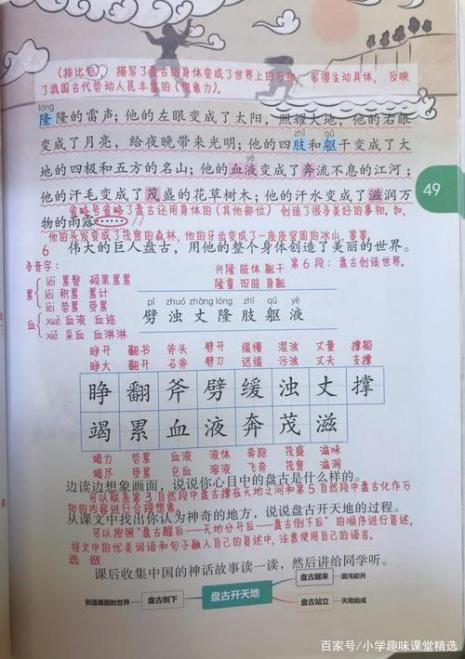 （排比句），描写了盘古的身体变成了世界上的万物，写得生动具体，反映
了我国古代劳动人民丰富的（想象力）。
lóng
隆隆的雷声；他的左眼变成了太阳，照耀大地；他的右眼
变成了月亮，给夜晚带来光明；他的四肢和躯干变成了大
zhī qū
地的四极和五方的名山；他的血液变成了奔流不息的江河；
yè
他的汗毛变成了茂盛的花草树木；他的汗水变成了滋润万
物的雨露……
省略号省略了盘古还用身体的（其他部位）创造了很多美好的事物，如，
他的头发变成了茂密的森林，他的牙齿变成了一座座坚固的冰山，等等。
49
6 伟大的巨人盘古，用他的整个身体创造了美丽的世界。
多音字：
兴隆 肢体 躯干 第6段：盘古创造世界。
隆重 四肢 身躯
累 léi 累赘 硕果累累
lěi 积累 累计
lèi 劳累 受累
血 xuè 血液 血迹
xiě 采血 血淋淋
pī zhuó zhàng lóng zhī qū yè
劈 浊 丈 隆 肢 躯 液
睁开 翻书 斧头 劈开 缓慢 混浊 丈量 撑船
睁大 翻开 石斧 劈刀 迟缓 污浊 丈夫 支撑
睁 翻 斧 劈 缓 浊 丈 撑
竭 累 血 液 奔 茂 滋
竭力 劳累 血液 液体 奔跑 茂盛 滋味
竭尽 受累 充血 溶液 飞奔 茂密 滋润
边读边想象画面，说说你心目中的盘古是什么样的。
可以联系第3自然段中盘古撑在天地之间和第5自然段中盘古化作万
物的内容进行合理想象。
从课文中找出你认为神奇的地方，说说盘古开天地的过程。
可以按照“盘古醒后——天地分开后——盘古倒下后”的顺序进行复述，
将文中的优美词语和句子融入自己的复述中，注意使用自己的语言。
选做
课后收集中国的神话故事读一读，然后讲给同学听。
创造美丽的世界 盘古倒下 盘古开天地 盘古醒来 混沌初开
盘古站立 天地始成
百家号/小学趣味课堂精选